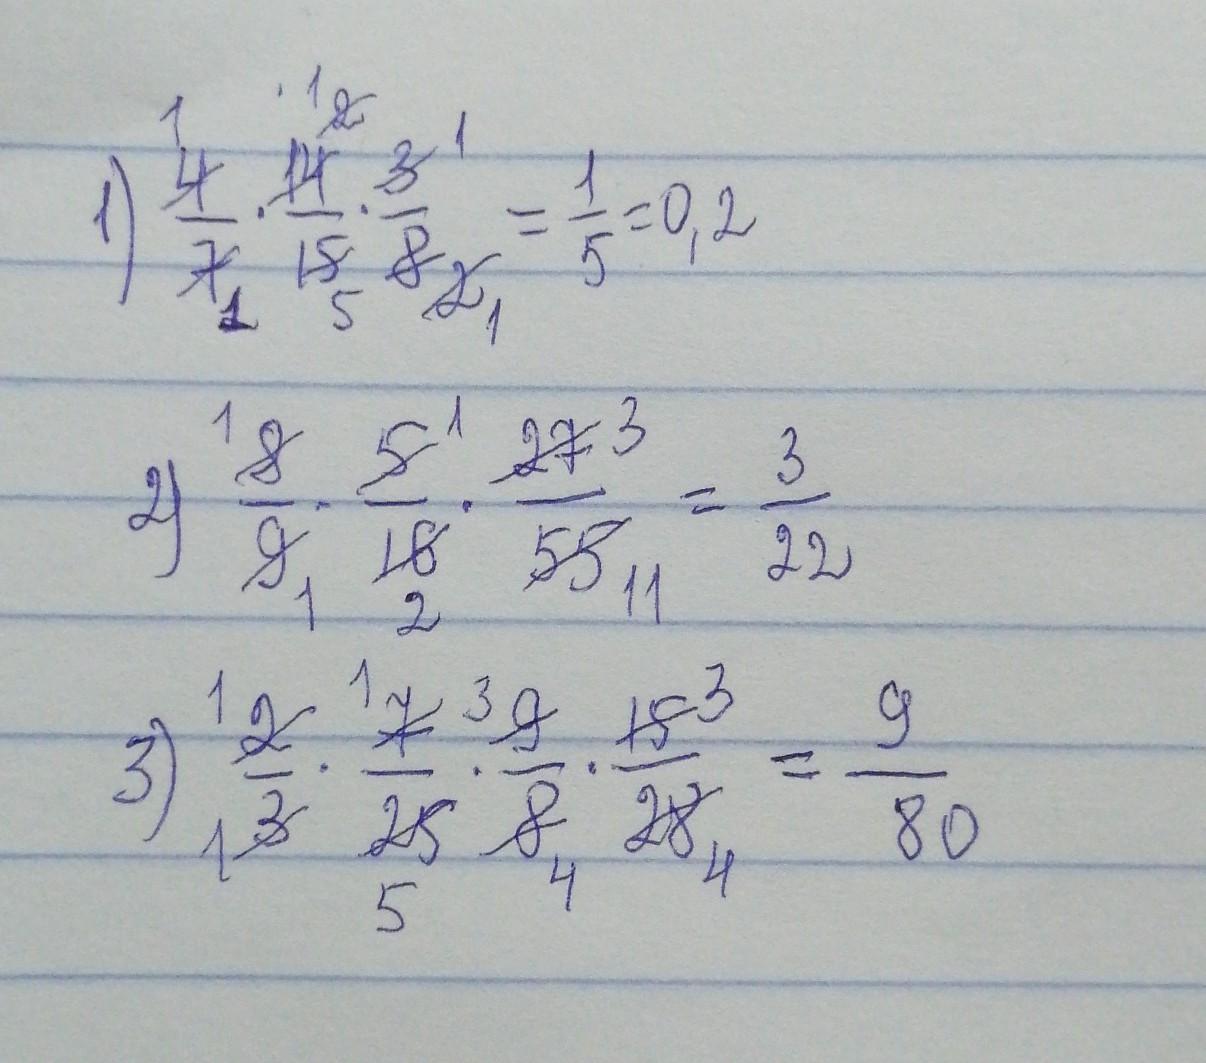 1) 4/7 · 14/15 · 3/8 = 1/5 = 0,2
2) 8/9 · 5/16 · 27/55 = 3/22
3) 2/3 · 7/25 · 9/8 · 15/28 = 9/80